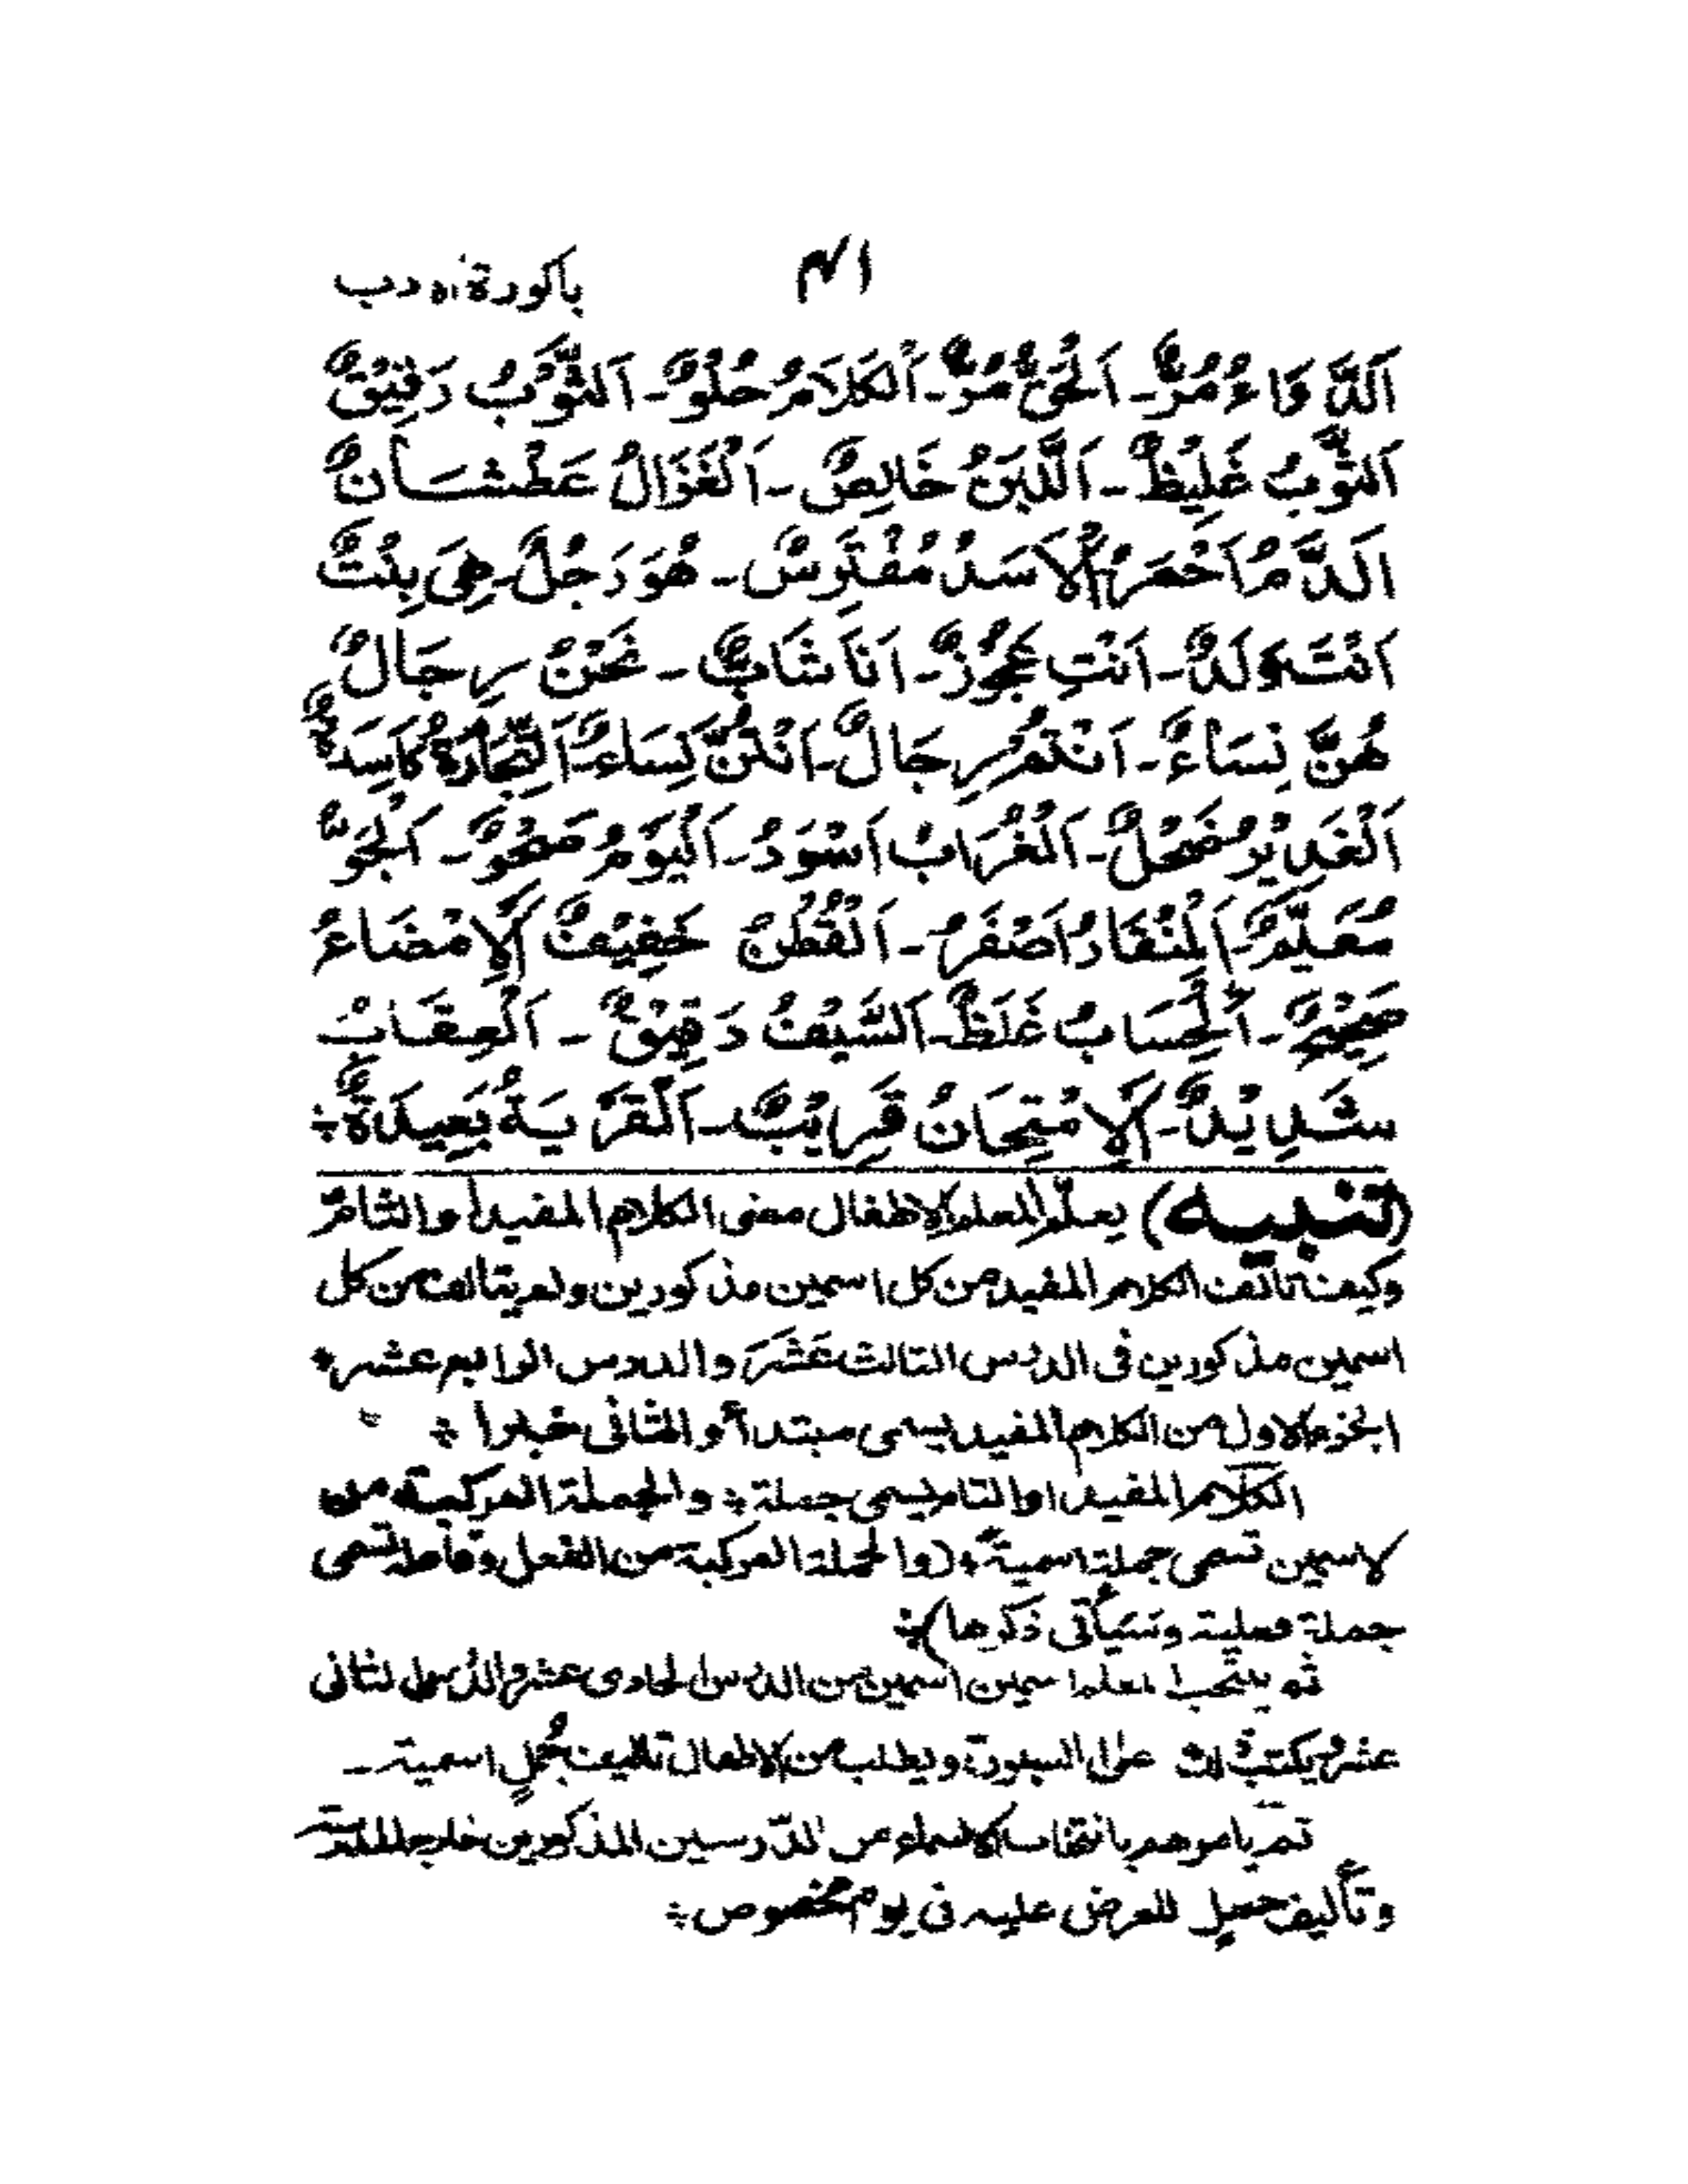 باكورة الادب
اَلدَّوَاءُ مُرٌّ ـ اَلْحَقُّ مُرٌّ ـ اَلْكَلَامُ حُلْوٌ ـ اَلثَّوْبُ رَقِيْقٌ
اَلثَّوْبُ غَلِيْظٌ ـ اَللَّبَنُ خَالِصٌ ـ اَلْغَزَالُ عَطْشَانٌ
اَلدَّمُ اَحْمَرُ اَلْاَسَدُ مُفْتَرِسٌ ـ هُوَ رَجُلٌ ـ هِىَ بِنْتٌ
اَنْتَ وَلَدٌ ـ اَنْتِ عَجُوْزٌ ـ اَنَا شَابٌّ ـ نَحْنُ رِجَالٌ
هُنَّ نِسَاءٌ ـ اَنْتُمْ رِجَالٌ ـ اَنْتُنَّ نِسَاءٌ اَلتِّجَارَةُ كَاسِدَةٌ
اَلْغَدِيْرُ ضَحْلٌ ـ اَلْغُرَابُ اَسْوَدُ ـ اَلْيَوْمُ صَحْوٌ ـ اَلْجَوُّ
مُغَيِّمٌ ـ اَلْمِنْقَارُ اَصْفَرُ ـ اَلْقُطُنُ خَفِيْفٌ اَلْاِمْضَاءُ
صَحِيْحٌ ـ اَلْحِسَابُ غَلَطٌ ـ اَلسَّيْفُ دَقِيْقٌ ـ اَلْعِقَابُ
شَدِيْدٌ ـ اَلْاِمْتِحَانُ قَرِيْبٌ ـ اَلْقَرْيَةُ بَعِيدَةٌ ÷
(تنبيه) يعلّم المعلم الاطفال معنى الكلام المفيد او التام
وكيف تألف الكلام المفيد من كل اسمين مذكورين ولم يتالف من كل
اسمين مذكورين فى الدرس الثالث عَشَرَ والدرس الرابع عشر ÷
الجزء الاول من الكلام المفيد يسمى مبتدأ والثانى خبرا ÷
الكلام المفيد او التام يسمى جملة ÷ والجملة المركبة من
الاسمين تسمى جملة اسمية ÷ (والجملة المركبة من الفعل وفاعله تسمى
جملة فعلية وسيأتى ذكرها) ÷
ثم ينتخب المعلم اسمين اسمين من الدرس الحادى عشر والدرس الثانى
عشر ويكتب على السبورة ويطلب من الاطفال تاليف جُمَلٍ اسمية ـ
ثم يامرهم بانتخاب الاسماء من الدّرسين المذكورين خارج المدرسة
وتأليف جمل للعرض عليه فى يوم مخصوص ÷